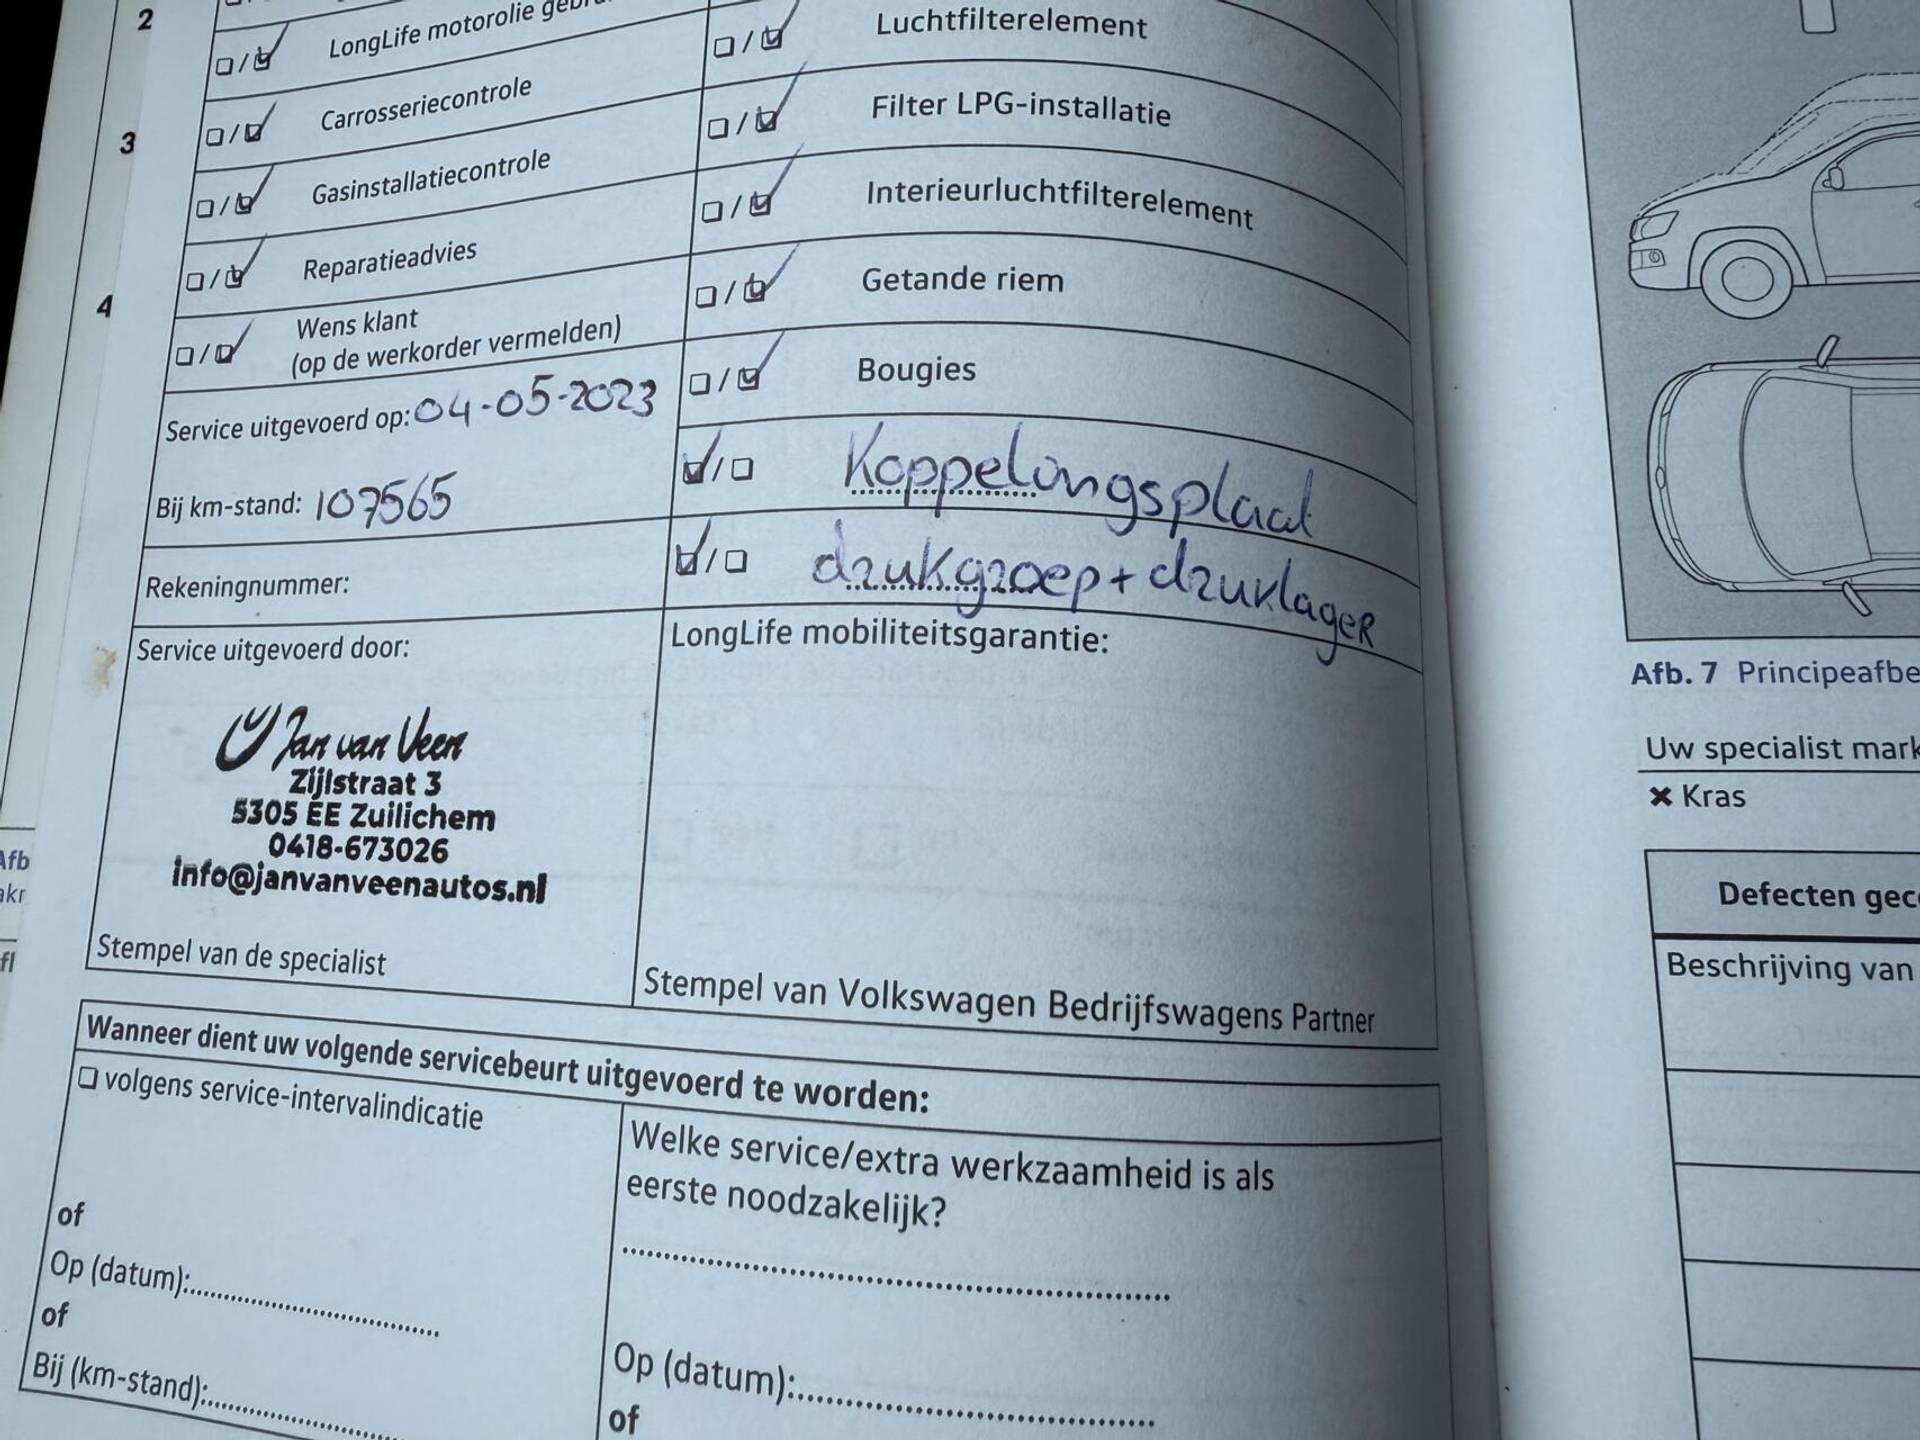 2
LongLife motorolie
Carrosseriecontrole
3
Gasinstallatiecontrole
Reparatieadvies
4
Wens klant
(op de werkorder vermelden)
Service uitgevoerd op: 04-05-2023
Bij km-stand: 107565
Rekeningnummer:
Service uitgevoerd door:
Jan van Veen
Zijlstraat 3
5305 EE Zuilichem
0418-673026
info@janvanveenautos.nl
Stempel van de specialist
Luchtfilterelement
Filter LPG-installatie
Interieurluchtfilterelement
Getande riem
Bougies
Koppelingsplaat
drukgroep + druklager
LongLife mobiliteitsgarantie:
Stempel van Volkswagen Bedrijfswagens Partner
Wanneer dient uw volgende servicebeurt uitgevoerd te worden:
volgens service-intervalindicatie
of
Op (datum):
of
Bij (km-stand):
Welke service/extra werkzaamheid is als
eerste noodzakelijk?
Op (datum):
of
Afb. 7 Principeafbe
Uw specialist mark
× Kras
Defecten gec
Beschrijving van